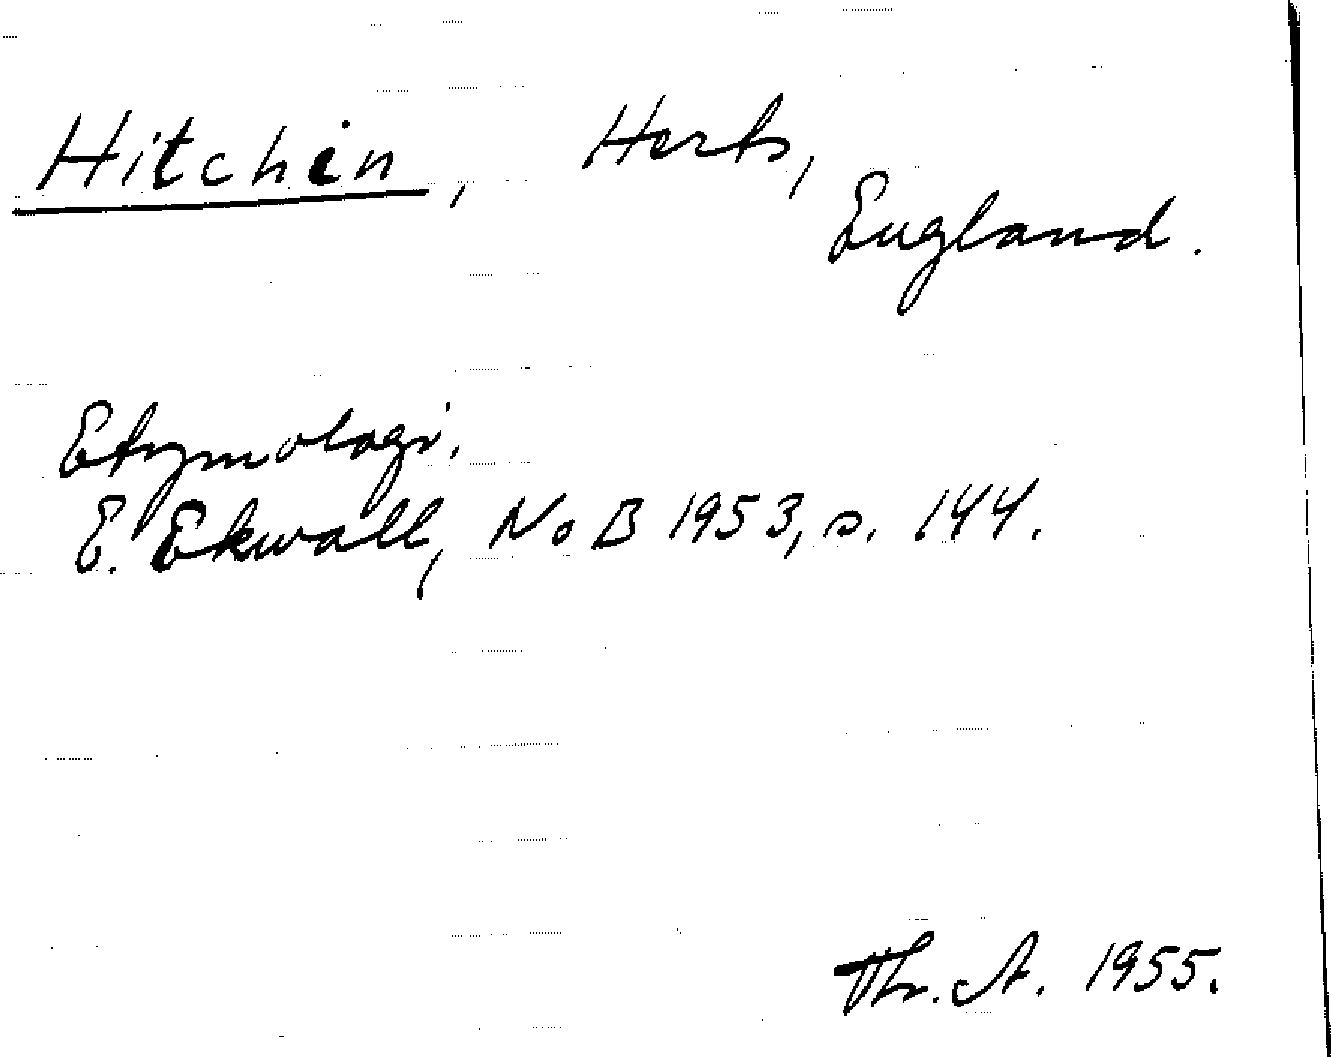 Hitchin, Herts,
England.
Etymologi.
E. Ekwall, NoB 1953, s. 144.
Th. A. 1955.